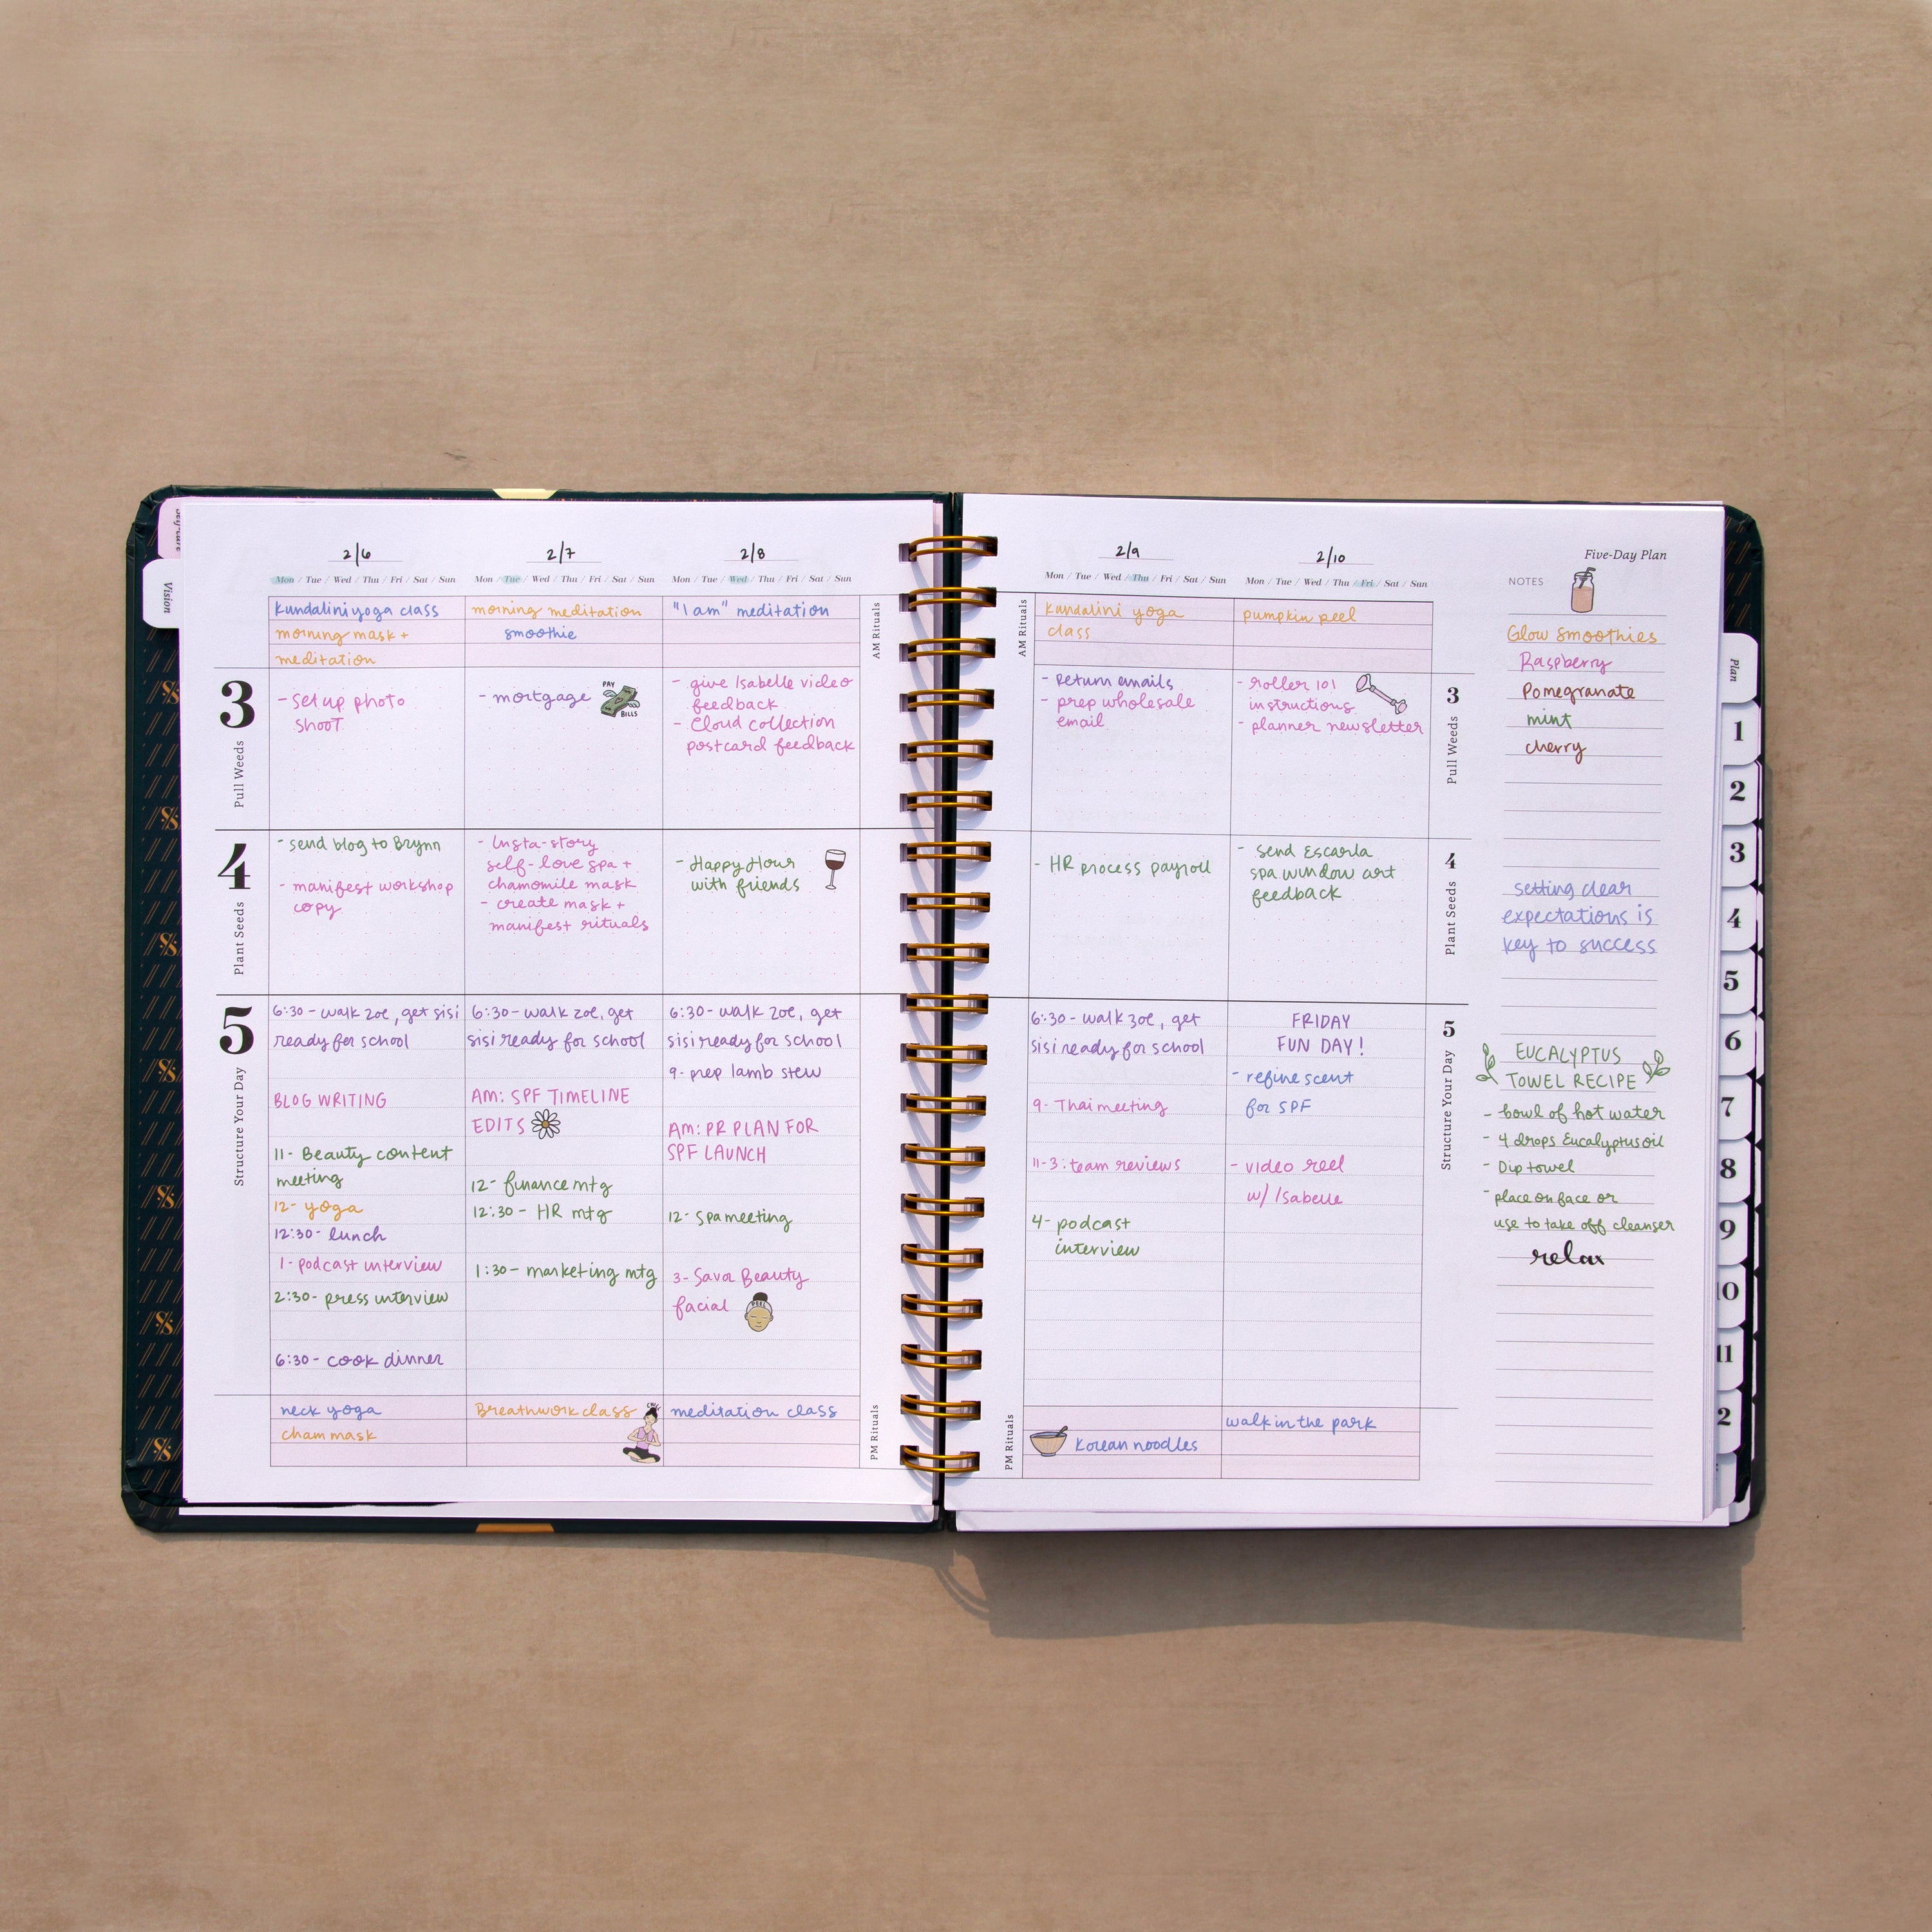 Self-care
Vision
2/6
Mon / Tue / Wed / Thu / Fri / Sat / Sun
Kundalini yoga class
morning mask +
meditation
2/7
Mon / Tue / Wed / Thu / Fri / Sat / Sun
morning meditation
smoothie
2/8
Mon / Tue / Wed / Thu / Fri / Sat / Sun
"I am" meditation
AM Rituals
3
Pull Weeds
- Set up photo
shoot
- mortgage
PAY
BILLS
- give Isabelle video
feedback
- Cloud collection
postcard feedback
4
Plant Seeds
- send blog to Brynn
- manifest workshop
copy
- Insta-story
self-love spa +
chamomile mask
- create mask +
manifest rituals
- Happy Hour
with friends
5
Structure Your Day
6:30 - walk zoe, get sisi
ready for school
BLOG WRITING
11- Beauty content
meeting
12- yoga
12:30- lunch
1- podcast interview
2:30- press interview
6:30- cook dinner
6:30- walk zoe, get
sisi ready for school
AM: SPF TIMELINE
EDITS
12- finance mtg
12:30 - HR mtg
1:30- marketing mtg
6:30- walk zoe, get
sisi ready for school
9- prep lamb stew
AM: PR PLAN FOR
SPF LAUNCH
12- spa meeting
3- Savor Beauty
facial
neck yoga
cham mask
Breathwork class
meditation class
PM Rituals
2/9
Mon / Tue / Wed / Thu / Fri / Sat / Sun
AM Rituals
Kundalini yoga
class
2/10
Mon / Tue / Wed / Thu / Fri / Sat / Sun
pumpkin peel
- Return emails
- prep wholesale
email
- roller 101
instructions
- planner newsletter
3
Pull Weeds
- HR process payroll
- Send Escarla
spa window art
feedback
4
Plant Seeds
6:30 - walk zoe, get
sisi ready for school
9- Thai meeting
11-3: team reviews
4- podcast
interview
FRIDAY
FUN DAY!
- refine scent
for SPF
- video reel
w/ Isabelle
5
Structure Your Day
PM Rituals
Korean noodles
walk in the park
Five-Day Plan
NOTES
Glow smoothies
Raspberry
Pomegranate
mint
cherry
setting clear
expectations is
key to success
EUCALYPTUS
TOWEL RECIPE
- bowl of hot water
- 4 drops Eucalyptus oil
- Dip towel
- place on face or
use to take off cleanser
relax
Plan
1
2
3
4
5
6
7
8
9
10
11
2